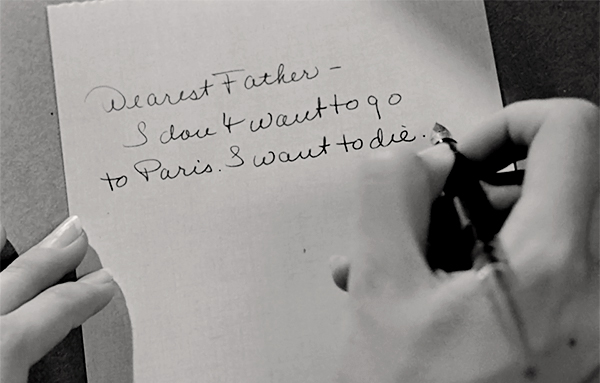 Dearest Father –
I don't want to go
to Paris. I want to die.